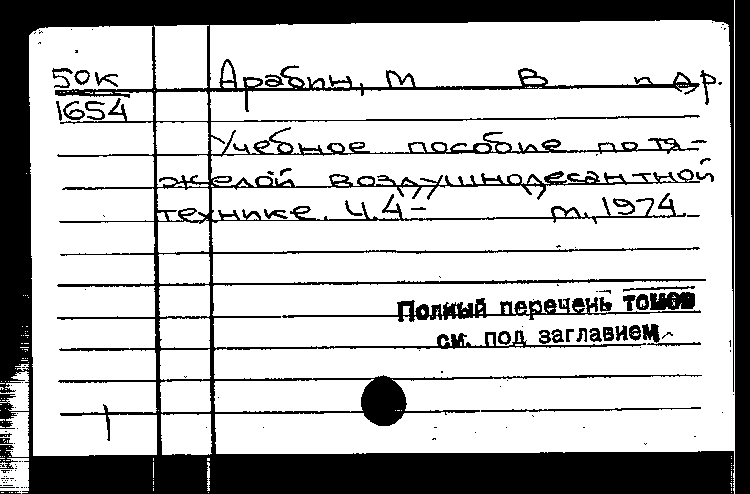 50к Арабин, М В и др.
1654
Учебное пособие по тя-
желой воздушнодесантной
технике. Ч.4- М., 1974.
Полный перечень томов
см. под заглавием